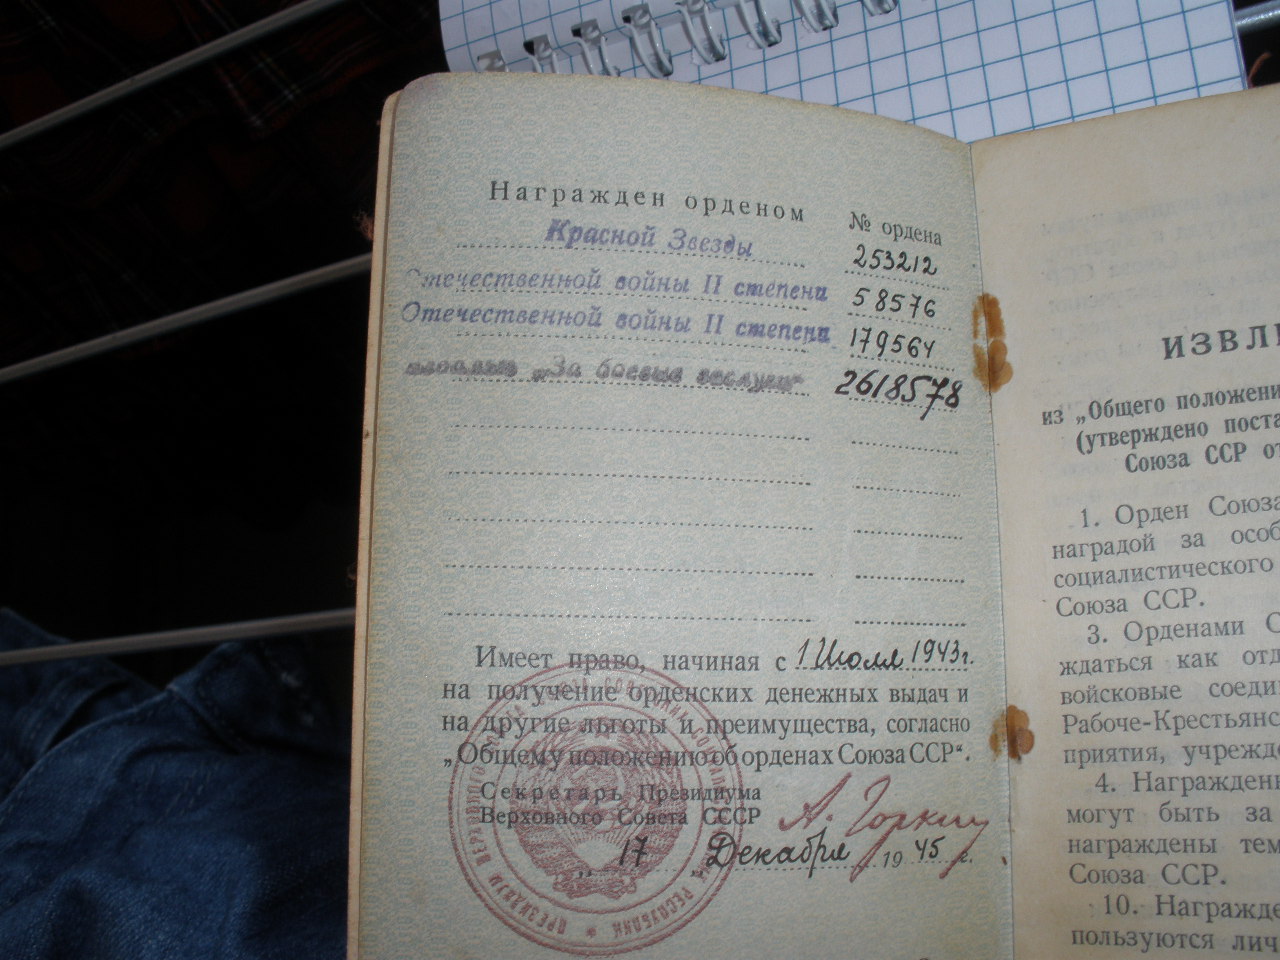 Награжден орденом
№ ордена
Красной Звезды
253212
Отечественной войны II степени
58576
Отечественной войны II степени
179564
медалью „За боевые заслуги“
2618578
Имеет право, начиная с 1 Июля 1943г.
на получение орденских денежных выдач и
на другие льготы и преимущества, согласно
„Общему положению об орденах Союза ССР“.
Секретарь Президиума
Верховного Совета СССР
А. Горкин
„17„ Декабря 1945 г.
ПРЕЗИДИУМ ВЕРХОВНОГО
РЕСПУБЛИК
ИЗВЛЕ
из „Общего положени
(утверждено поста
Союза ССР от
1. Орден Союза
наградой за особ
социалистического
Союза ССР.
3. Орденами С
ждаться как отд
войсковые соеди
Рабоче-Крестьянс
приятия, учрежде
4. Награжденн
могут быть за
награждены тем
Союза ССР.
10. Награжде
пользуются лич